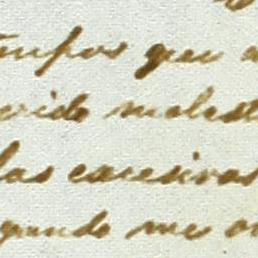 tiempos que a
erido molest
las excesivas
gundo me o